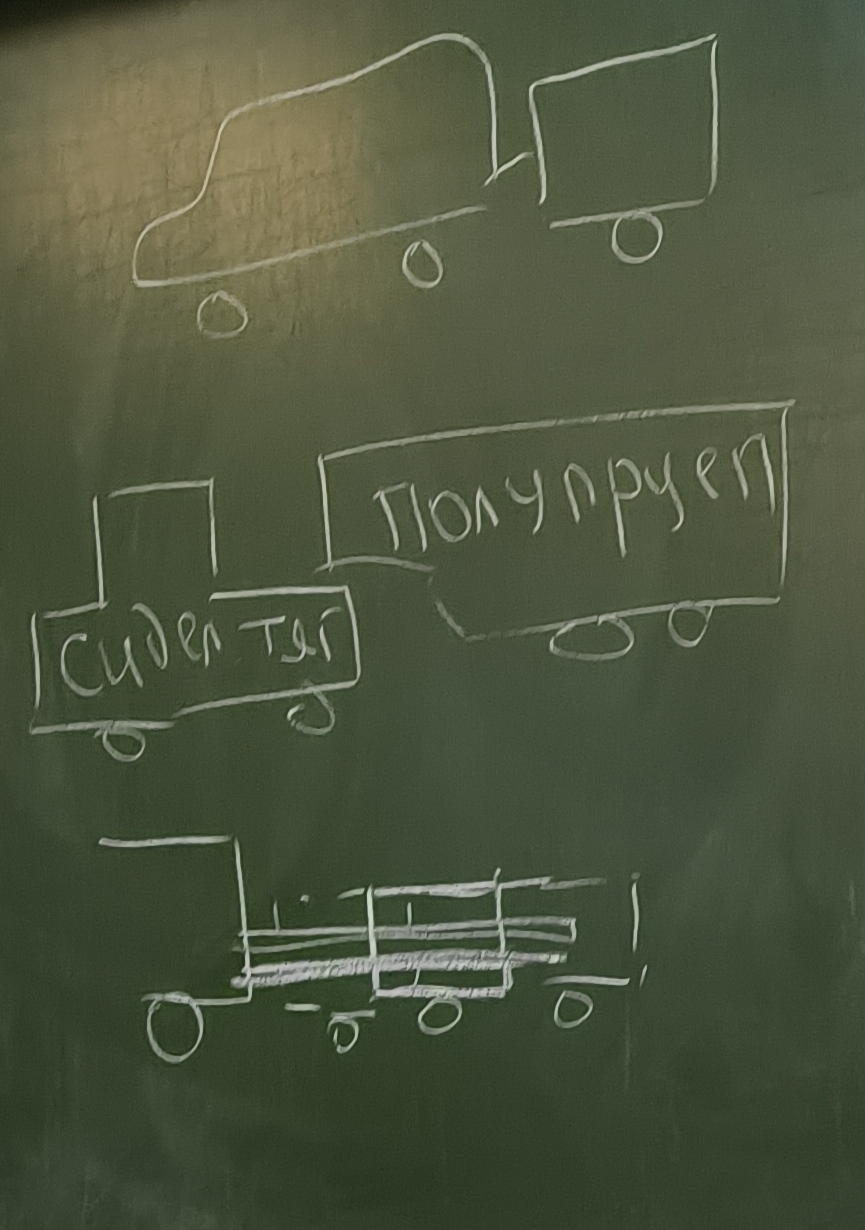 Полуприцеп
Сидел тяг